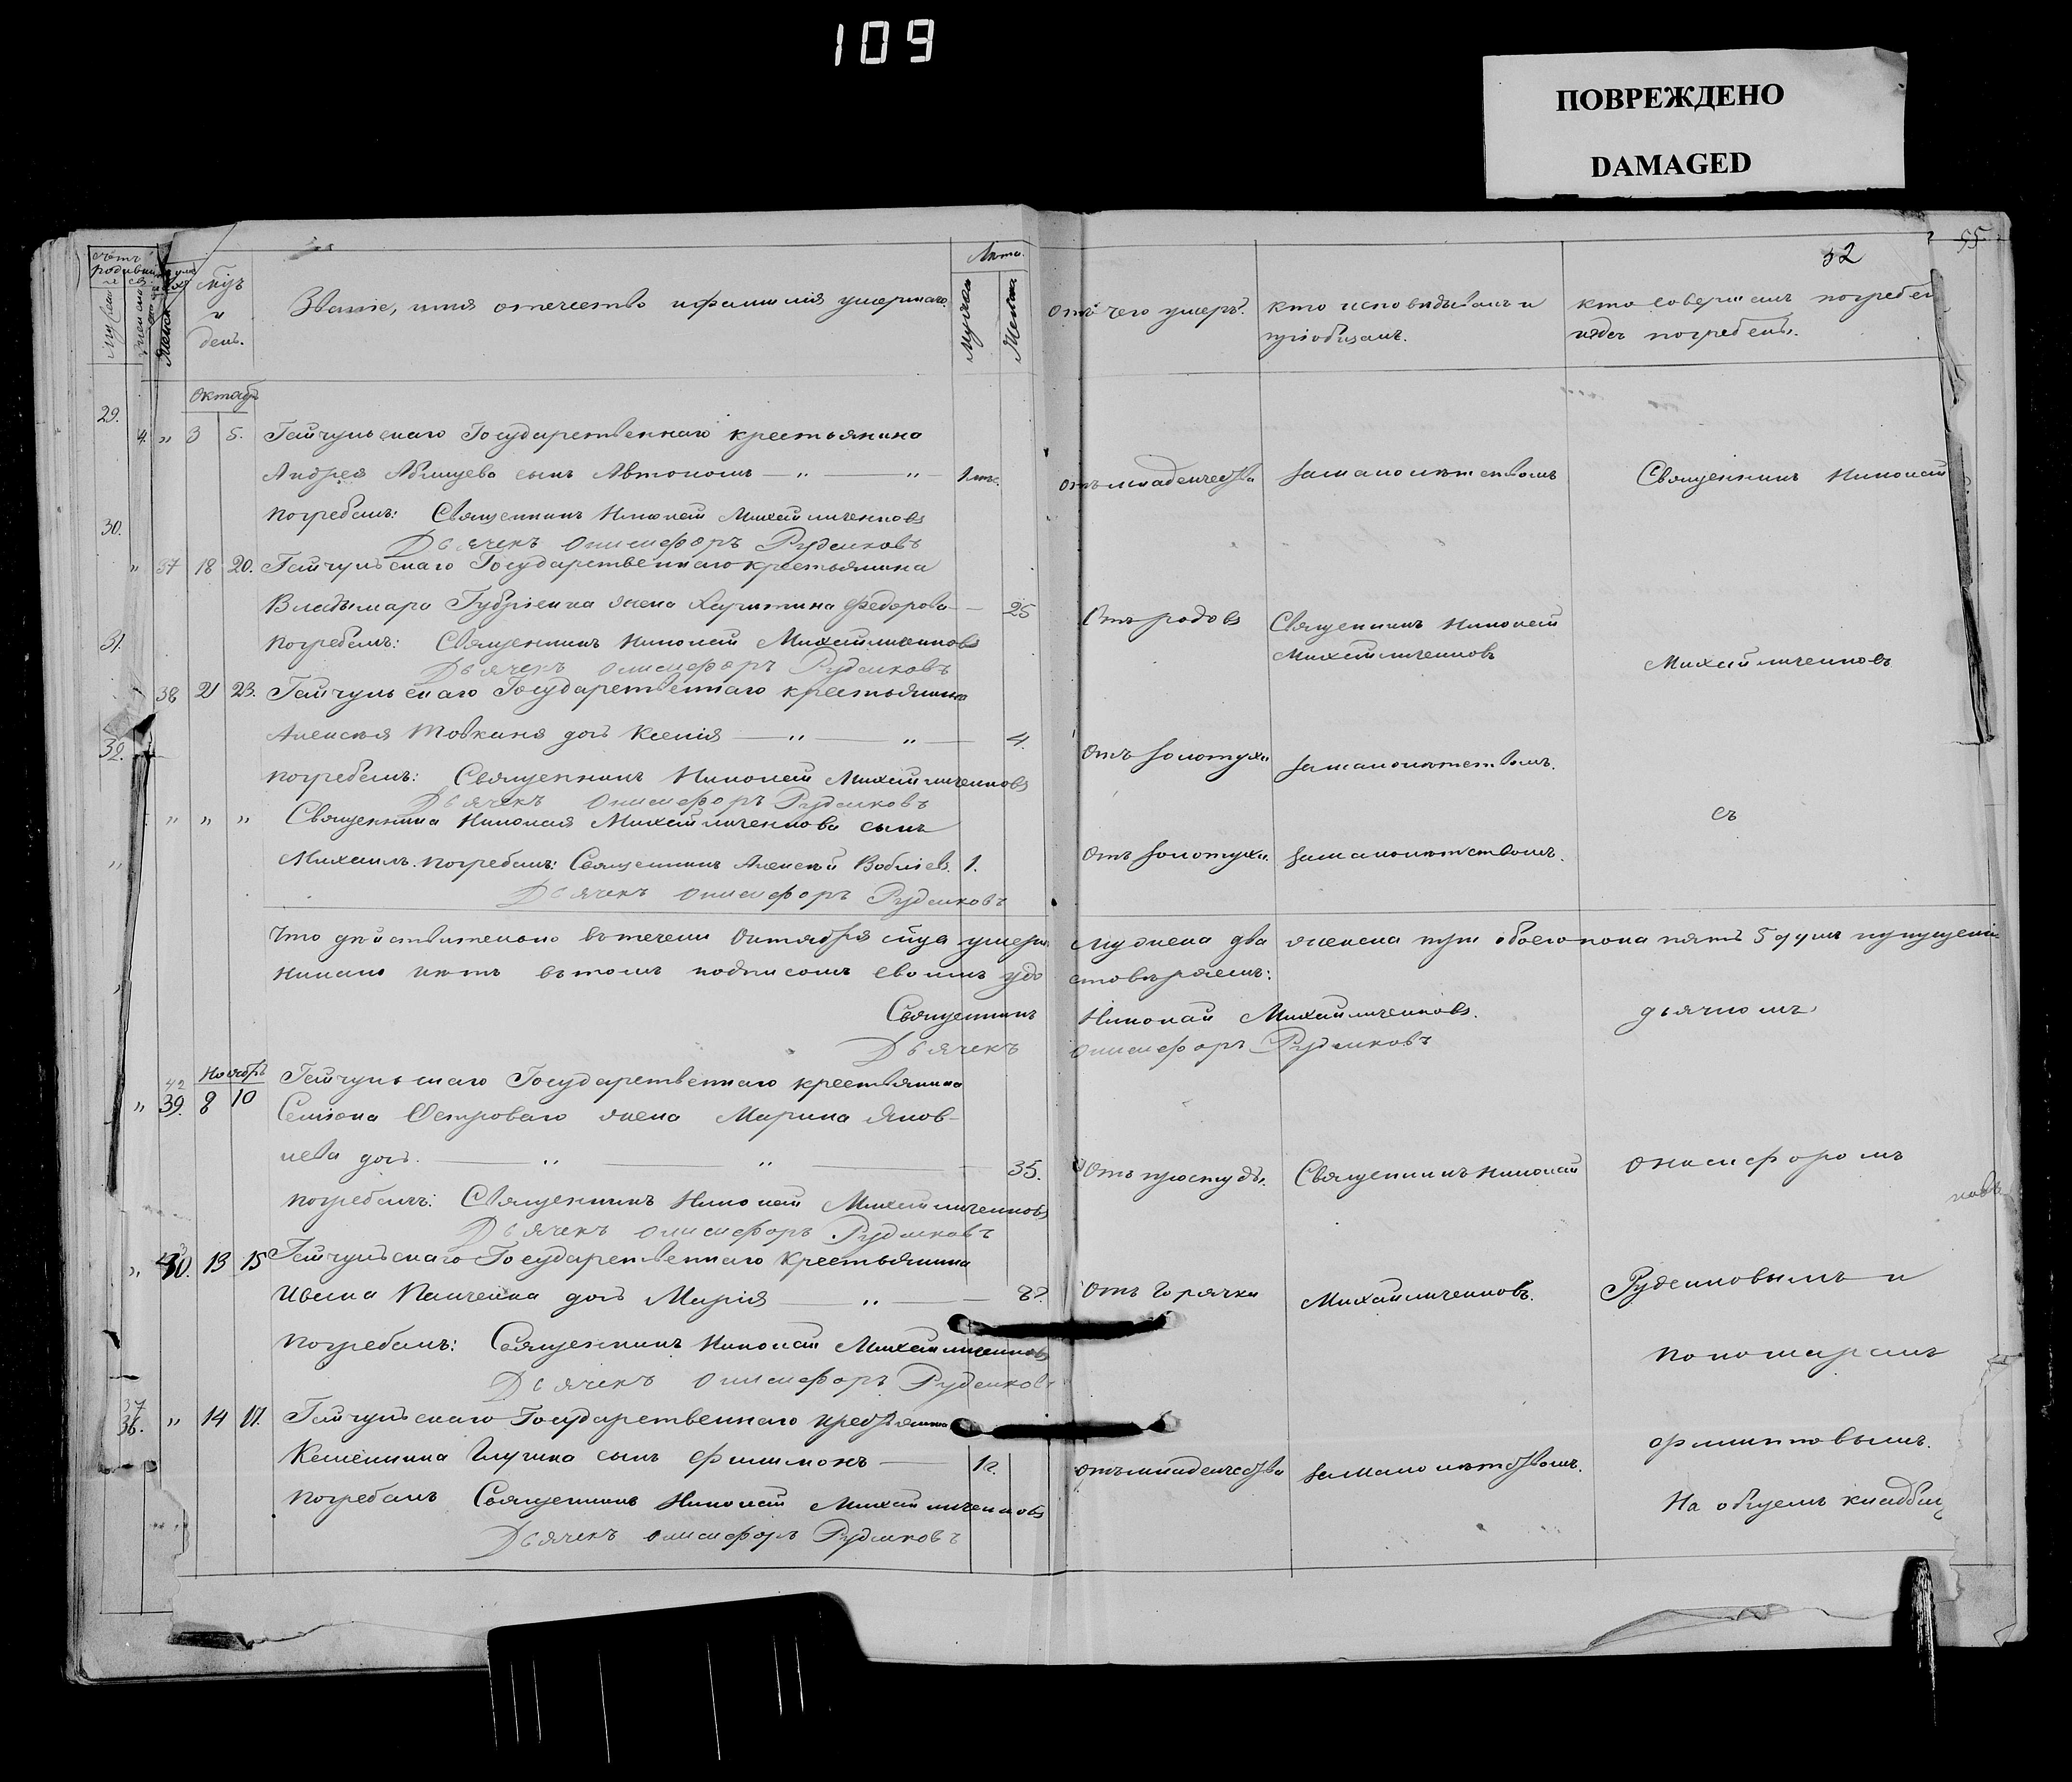 109
ПОВРЕЖДЕНО
DAMAGED
52
55.
Лѣта.
Мѣц
и
день.
Званіе, имя отечество и фамилія умершаго.
Мужска
Женска
Отъ чего умеръ?
кто исповѣдывалъ и
пріобщалъ.
кто совершалъ погребен
и где погребенъ.
Октябр
29.
4. „ 3 5. Гайчульскаго Государственнаго крестьянина
Андрея сынъ Автономъ — „ — „
отъ младенчества
за малолѣтствомъ
Священникъ Николай
погребалъ: Священникъ Николай Михайличенковъ
30.
Дьячекъ Онисифоръ Руденковъ
„ 37 18 20. Гайчульскаго Государственнаго крестьянина
Владымара Губріенка жена Харитина Федорова — 25
Отъ родовъ
Священникъ Николай
Михайличенковъ
31.
погребалъ: Священникъ Николай Михайличенковъ
Михайличенковъ
Дьячекъ Онисифоръ Руденковъ
38 21 23. Гайчульскаго Государственнаго крестьянина
32.
Алексѣя Товканя дочь Ксенія — „ „ — 4.
отъ золотухи
за малолѣтствомъ.
погребалъ: Священникъ Николай Михайличенковъ
Дьячекъ Онисифоръ Руденковъ
съ
„ „ „ Священника Николая Михайличенкова сынъ
Михаилъ. погребалъ: Священникъ Алексѣй 1.
отъ золотухи.
за малолѣтствомъ.
Дьячекъ Онисифоръ Руденковъ
Что дѣйствительно въ теченіи Октября мѣсяца умерло мужеска два женска три обоего пола пять 5 душъ
никого нѣтъ въ томъ подписомъ своимъ удостовѣряемъ:
Священникъ Николай Михайличенковъ.
дьячкомъ
Дьячекъ Онисифоръ Руденковъ
Ноябрь
42
„ 39. 8 10 Гайчульскаго Государственнаго крестьянина
Семіона Островаго жена Марина Яков-
лева дочь. — „ — „ — 35.
Отъ простуды.
Священникъ Николай
Онисифоромъ
погребалъ: Священникъ Николай Михайличенковъ
Дьячекъ Онисифоръ Руденковъ
„ 40. 13 15 Гайчульскаго Государственнаго крестьянина
Ивана Панченка дочь Марія — „ —
Отъ горячки
Михайличенковъ.
Руденковымъ и
погребалъ: Священникъ Николай Михайличенковъ
пономаремъ
Дьячекъ Онисифоръ Руденковъ
37
36. „ 14 17. Гайчульскаго Государственнаго крестьянина
сынъ Филимонъ —
отъ младенчества
за малолѣтствомъ.
погребалъ Священникъ Николай Михайличенковъ
На общемъ кладбищ
Дьячекъ Онисифоръ Руденковъ